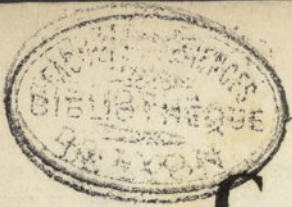 FACULTÉ DES SCIENCES
BIBLIOTHEQUE
DE LYON